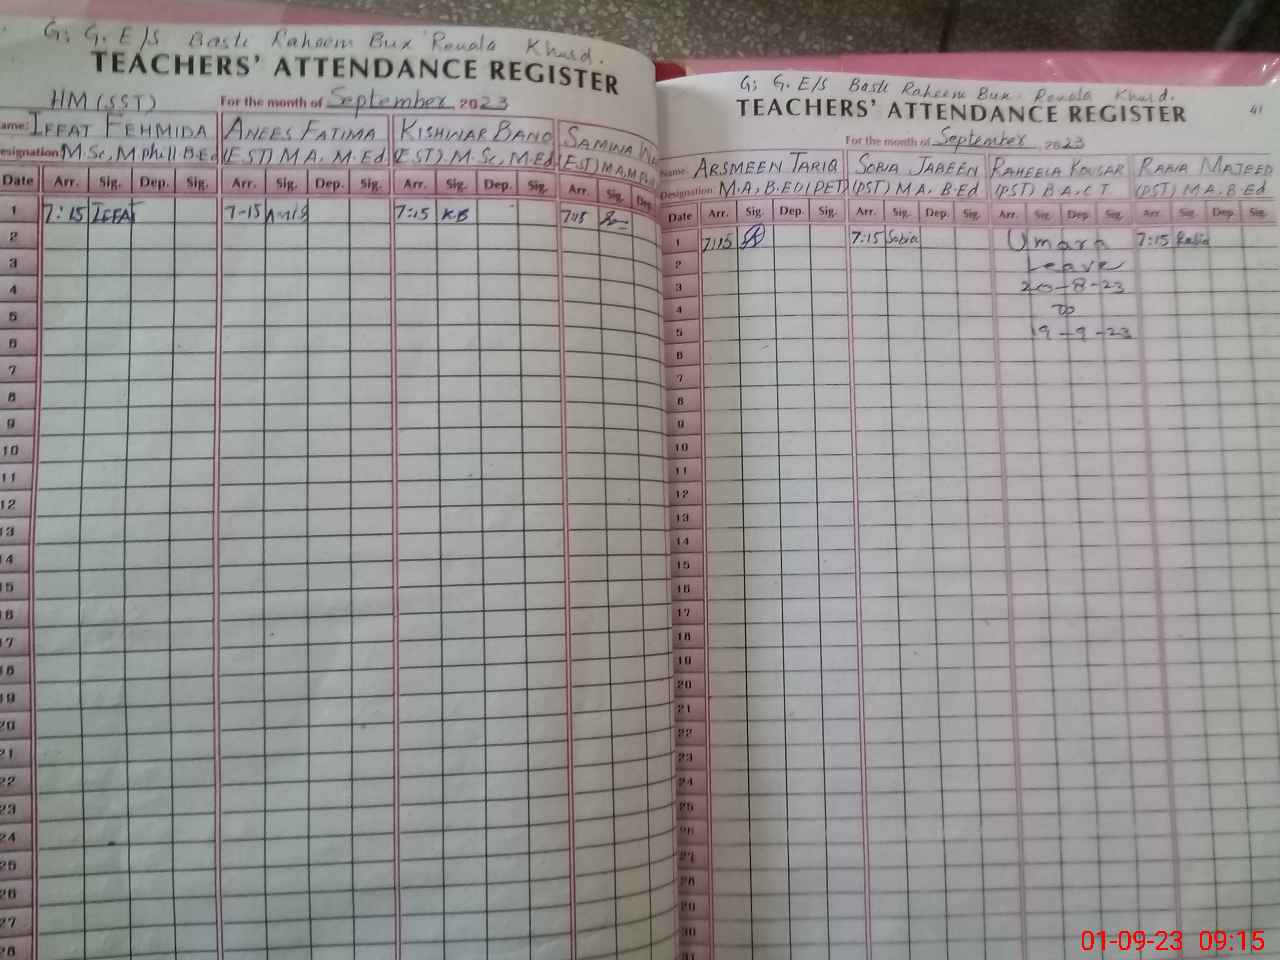 G. G. E/S Basti Raheem Bux Ronala Khurd.
TEACHERS' ATTENDANCE REGISTER
HM (SST) For the month of September 2023
ame: IFFAT FEHMIDA ANEES FATIMA KISHWAR BANO SAMINA
esignation M.Sc, M.phill B.Ed (EST) M A, M.Ed (EST) M.Sc, M.Ed (EST) M A, M.Ph
Date Arr. Sig. Dep. Sig. Arr. Sig. Dep. Sig. Arr. Sig. Dep. Sig. Arr. Sig. Dep.
1 7:15 IFFAT 7-15 Anis 7:15 KB 7:15
2
3
4
5
6
7
8
9
10
11
12
13
14
15
16
17
18
19
20
21
22
23
24
25
26
27
28
G. G. E/S Basti Raheem Bux Ronala Khurd.
TEACHERS' ATTENDANCE REGISTER 41
For the month of September 2023
Name. ARSMEEN TARIQ SOBIA JABEEN RAHEELA KOUSAR RABIA MAJEED
Designation M.A, B.ED (PET) (PST) M A, B.Ed (PST) B A, C T (PST) M A, B.Ed
Date Arr. Sig. Dep. Sig. Arr. Sig. Dep. Sig. Arr. Sig. Dep Sig. Arr. Sig. Dep Sig.
1 7:15 7:15 Sobia Umara 7:15 Rabia
2 Leave
3 20-8-23
4 To
5 19-9-23
6
7
8
9
10
11
12
13
14
15
16
17
18
19
20
21
22
23
24
25
26
27
28
29
30
31
01-09-23 09:15